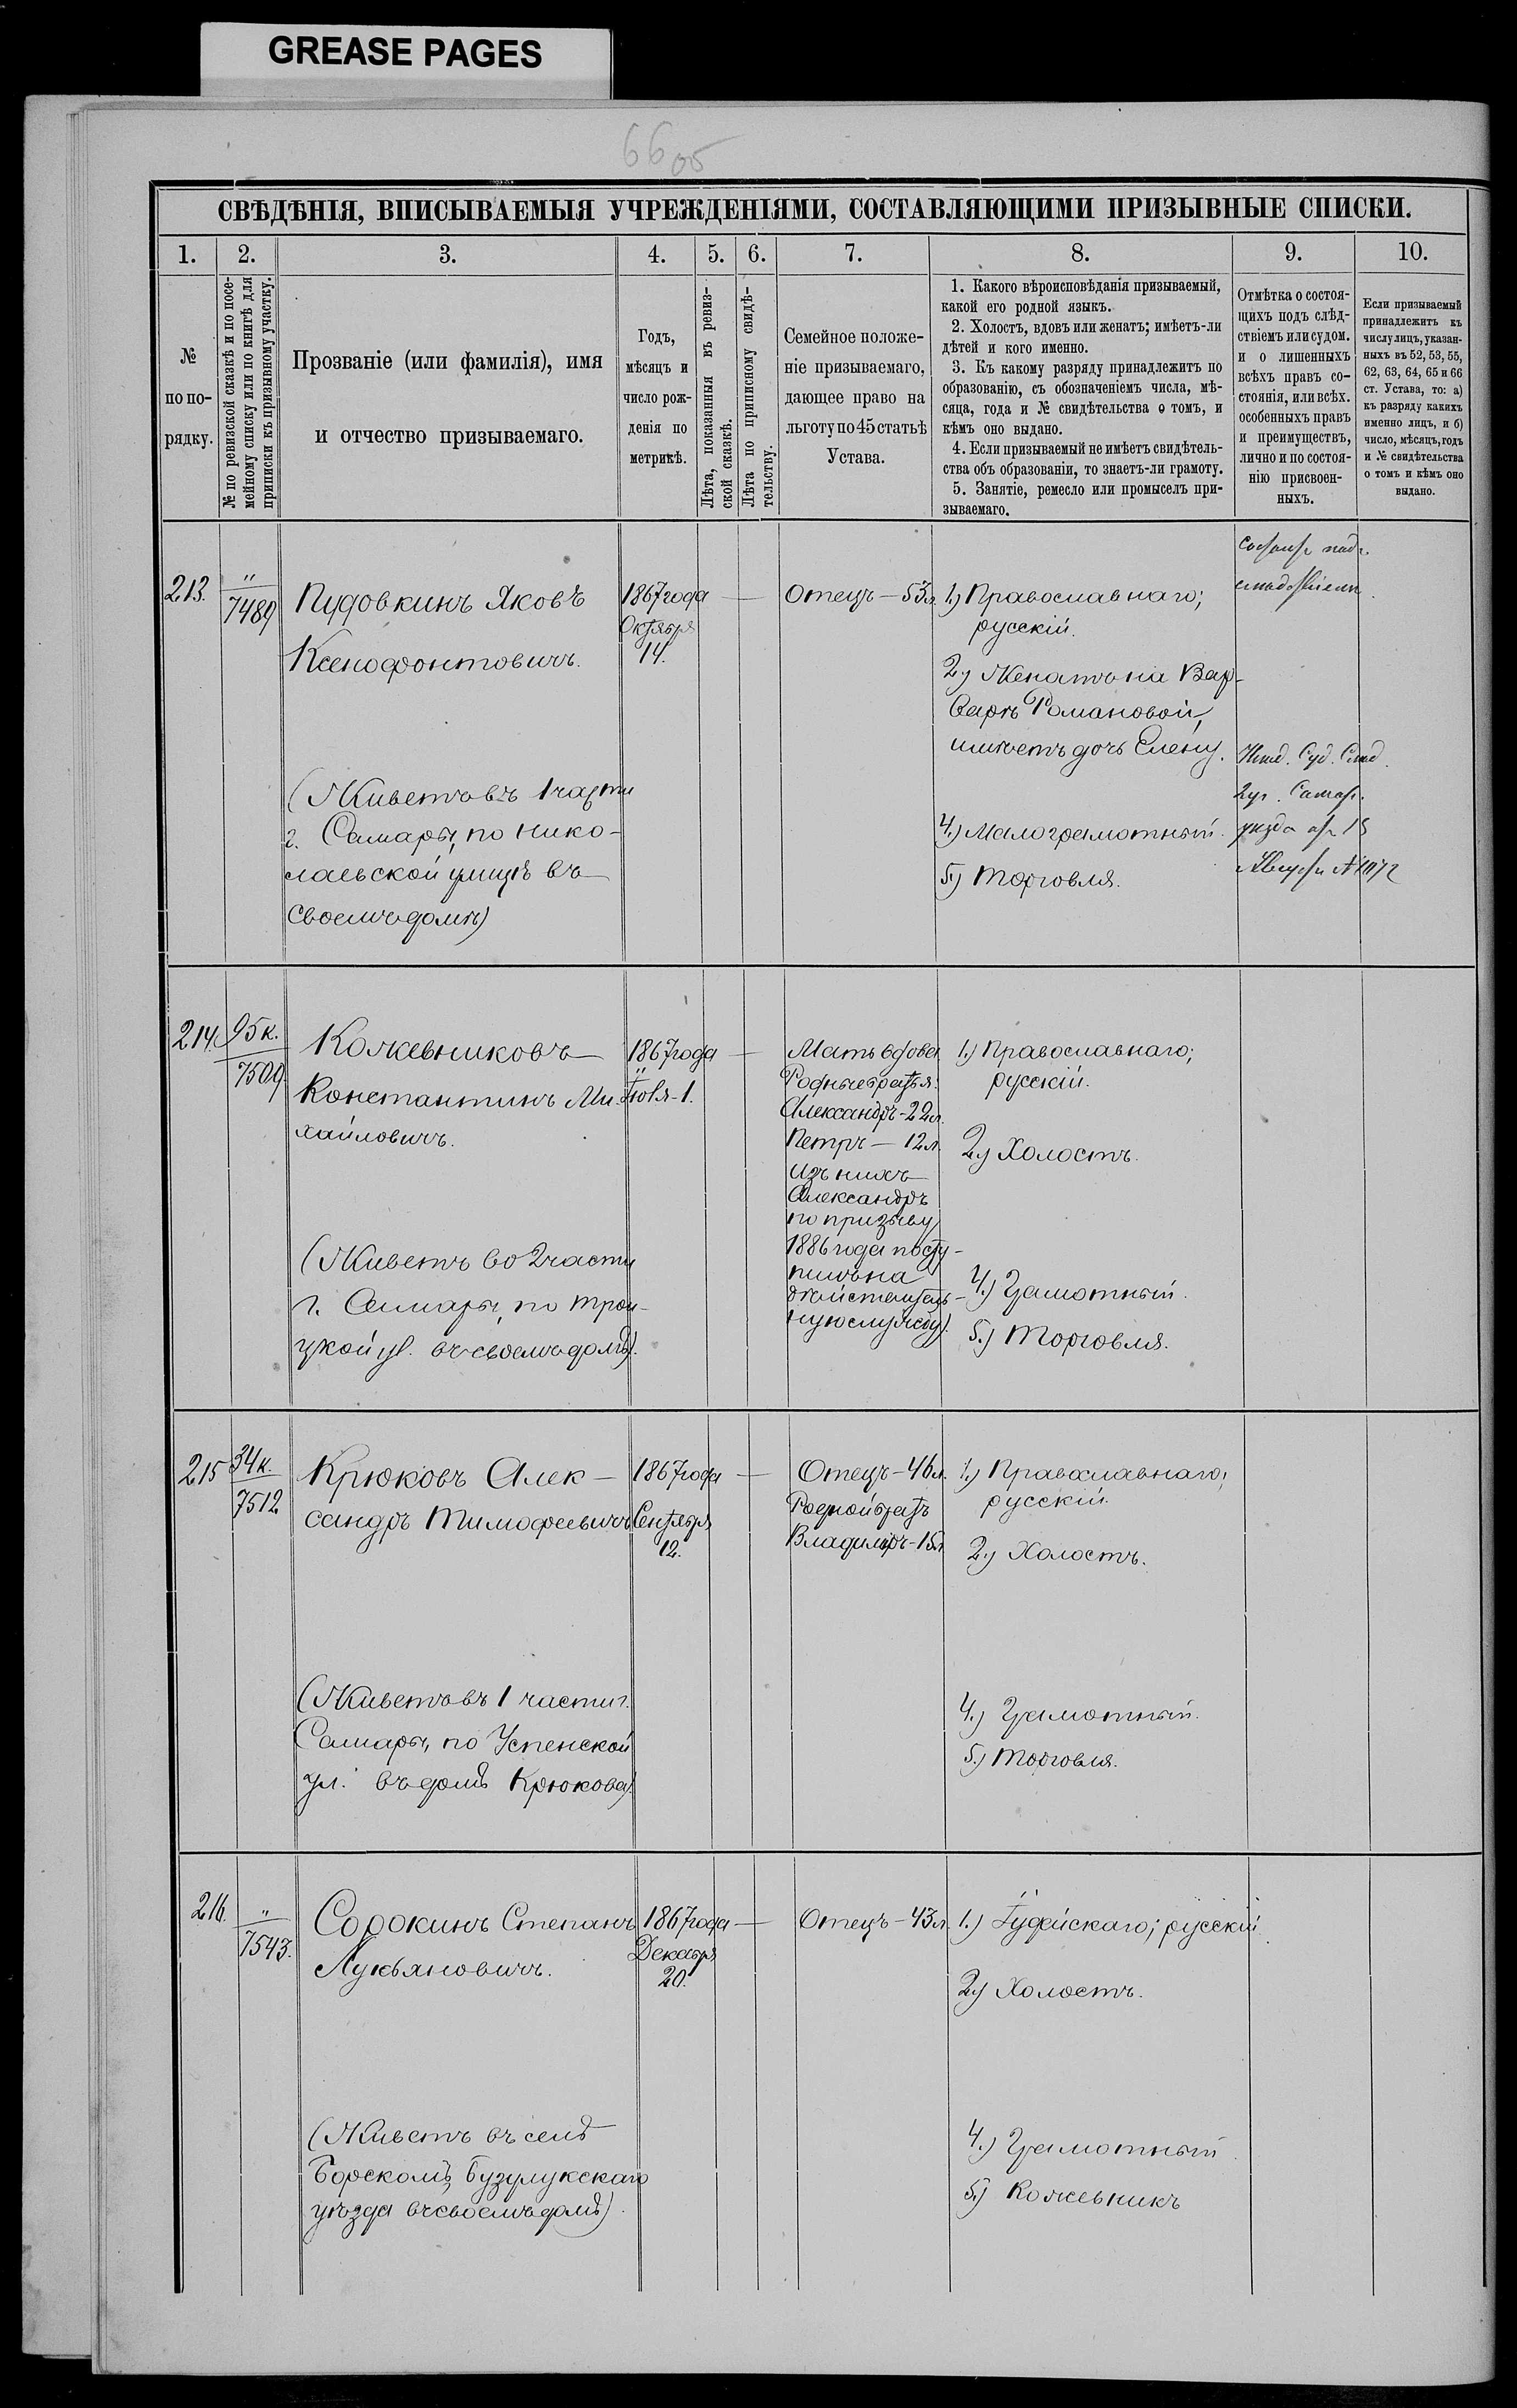 GREASE PAGES
66 об
СВѢДѢНІЯ, ВПИСЫВАЕМЫЯ УЧРЕЖДЕНІЯМИ, СОСТАВЛЯЮЩИМИ ПРИЗЫВНЫЕ СПИСКИ.
1. 2. 3. 4. 5. 6. 7. 8. 9. 10.
№
по по-
рядку.
№ по ревизской сказкѣ и по посе-
мейному списку или по книгѣ для
приписки къ призывному участку.
Прозваніе (или фамилія), имя
и отчество призываемаго.
Годъ,
мѣсяцъ и
число рож-
денія по
метрикѣ.
Лѣта, показанныя въ ревиз-
ской сказкѣ.
Лѣта по приписному свидѣ-
тельству.
Семейное положе-
ніе призываемаго,
дающее право на
льготу по 45 статьѣ
Устава.
1. Какого вѣроисповѣданія призываемый,
какой его родной языкъ.
2. Холостъ, вдовъ или женатъ; имѣетъ-ли
дѣтей и кого именно.
3. Къ какому разряду принадлежитъ по
образованію, съ обозначеніемъ числа, мѣ-
сяца, года и № свидѣтельства о томъ, и
кѣмъ оно выдано.
4. Если призываемый не имѣетъ свидѣтель-
ства объ образованіи, то знаетъ-ли грамоту.
5. Занятіе, ремесло или промыселъ при-
зываемаго.
Отмѣтка о состоя-
щихъ подъ слѣд-
ствіемъ или судом.
и о лишенныхъ
всѣхъ правъ со-
стоянія, или всѣх.
особенныхъ правъ
и преимуществъ,
лично и по состоя-
нію присвоен-
ныхъ.
Если призываемый
принадлежитъ къ
числу лицъ, указан-
ныхъ въ 52, 53, 55,
62, 63, 64, 65 и 66
ст. Устава, то: а)
къ разряду какихъ
именно лицъ, и б)
число, мѣсяцъ, годъ
и № свидѣтельства
о томъ и кѣмъ оно
выдано.
213.
"
7489
Пудовкинъ Яковъ
Ксенофонтовичъ.
(Живетъ въ 1 части
г. Самары, по Нико-
лаевской улицѣ въ
своемъ домѣ)
1867 года
Октября
14.
—
Отецъ — 53 л.
1.) Православнаго;
русскій.
2.) Женатъ на Вар-
варѣ Романовой,
имѣетъ дочь Елену.
4.) Малограмотный.
5.) Торговля.
Состоитъ подъ
слѣдствіемъ.
Суд. Слѣд.
2 уч. Самар.
уѣзда от 15
214.
95 к.
7509
Кожевниковъ
Константинъ Ми-
хайловичъ.
(Живетъ во 2 части
г. Самары, по Трои-
цкой ул. въ своемъ домѣ).
1867 года
Іюля - 1.
—
Мать вдова
Родные братья:
Александръ - 22 л.
Петръ — 12 л.
изъ нихъ
Александръ
по призыву
1886 года посту-
пилъ на
дѣйствитель-
ную службу).
1.) Православнаго;
русскій.
2.) Холостъ.
4.) Грамотный.
5.) Торговля.
215
34 к.
7512
Крюковъ Алек-
сандръ Тимофеевичъ
(Живетъ въ 1 части г.
Самары, по Успенской
ул. въ домѣ Крюкова).
1867 года
Сентября
12.
—
Отецъ - 46 л.
Родной братъ
Владиміръ - 15 л.
1.) Православнаго;
русскій.
2.) Холостъ.
4.) Грамотный.
5.) Торговля.
216.
"
7543.
Сорокинъ Степанъ
Лукьяновичъ.
(Живетъ въ селѣ
Борскомъ, Бузулукскаго
уѣзда въ своемъ домѣ).
1867 года
Декабря
20.
—
Отецъ - 43 л.
1.) Іудейскаго; русскій.
2.) Холостъ.
4.) Грамотный.
5.) Кожевникъ